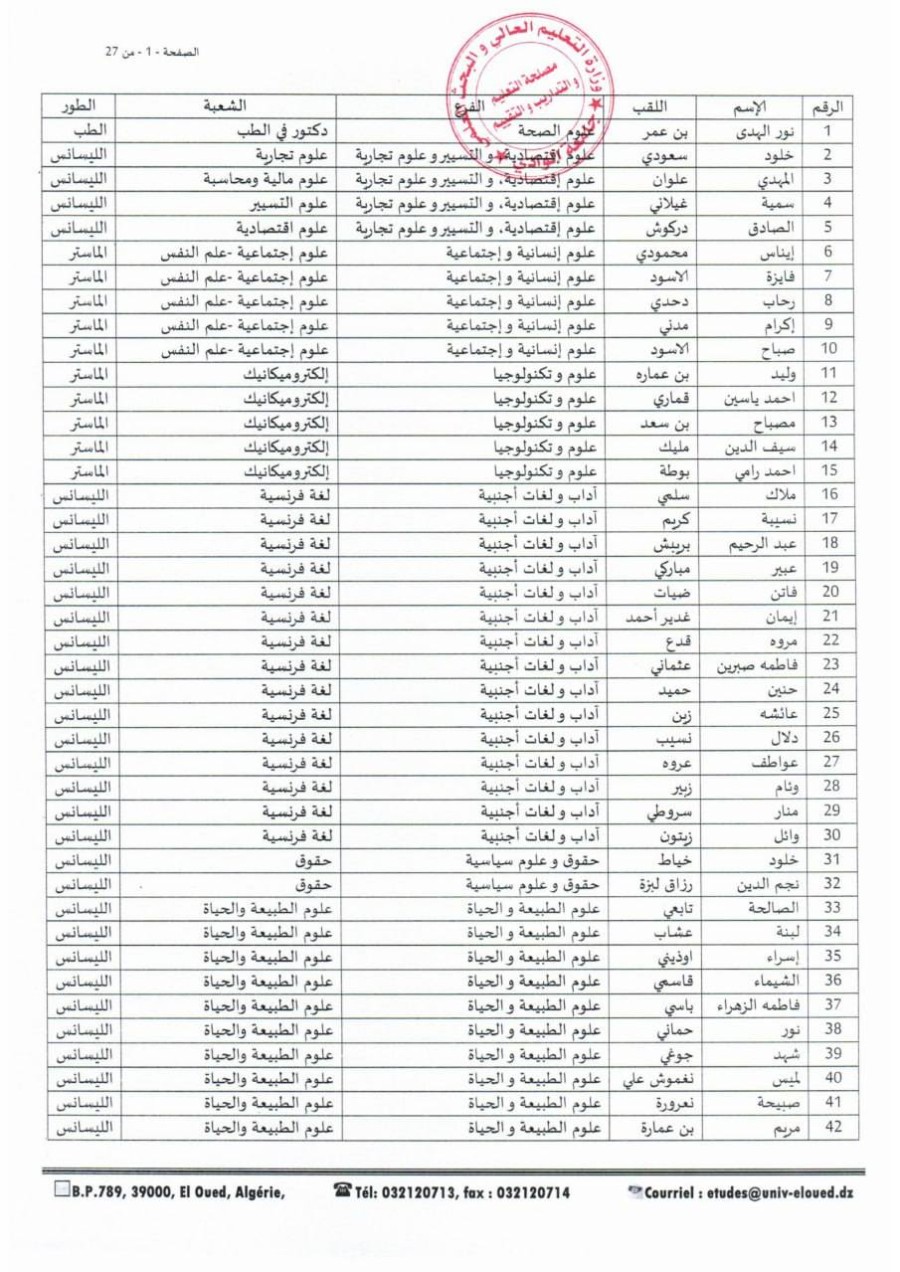 الصفحة - 1 - من 27
وزارة التعليم العالي و البحث العلمي
جامعة الوادي
مصلحة التعليم
و التداريب و التقييم
الرقم الإسم اللقب الفرع الشعبة الطور
1 نور الهدى بن عمر علوم الصحة دكتور في الطب الطب
2 خلود سعودي علوم إقتصادية، و التسيير و علوم تجارية علوم تجارية الليسانس
3 المهدي علوان علوم إقتصادية، و التسيير و علوم تجارية علوم مالية ومحاسبة الليسانس
4 سمية غيلاني علوم إقتصادية، و التسيير و علوم تجارية علوم التسيير الليسانس
5 الصادق دركوش علوم إقتصادية، و التسيير و علوم تجارية علوم اقتصادية الليسانس
6 إيناس محمودي علوم إنسانية و إجتماعية علوم إجتماعية -علم النفس الماستر
7 فايزة الاسود علوم إنسانية و إجتماعية علوم إجتماعية -علم النفس الماستر
8 رحاب دحدي علوم إنسانية و إجتماعية علوم إجتماعية -علم النفس الماستر
9 إكرام مدني علوم إنسانية و إجتماعية علوم إجتماعية -علم النفس الماستر
10 صباح الاسود علوم إنسانية و إجتماعية علوم إجتماعية -علم النفس الماستر
11 وليد بن عماره علوم و تكنولوجيا إلكتروميكانيك الماستر
12 احمد ياسين قماري علوم و تكنولوجيا إلكتروميكانيك الماستر
13 مصباح بن سعد علوم و تكنولوجيا إلكتروميكانيك الماستر
14 سيف الدين مليك علوم و تكنولوجيا إلكتروميكانيك الماستر
15 احمد رامي بوطة علوم و تكنولوجيا إلكتروميكانيك الماستر
16 ملاك سلمي آداب و لغات أجنبية لغة فرنسية الليسانس
17 نسيبة كريم آداب و لغات أجنبية لغة فرنسية الليسانس
18 عبد الرحيم بريبش آداب و لغات أجنبية لغة فرنسية الليسانس
19 عبير مباركي آداب و لغات أجنبية لغة فرنسية الليسانس
20 فاتن ضيات آداب و لغات أجنبية لغة فرنسية الليسانس
21 إيمان غدير أحمد آداب و لغات أجنبية لغة فرنسية الليسانس
22 مروه قدع آداب و لغات أجنبية لغة فرنسية الليسانس
23 فاطمه صبرين عثماني آداب و لغات أجنبية لغة فرنسية الليسانس
24 حنين حميد آداب و لغات أجنبية لغة فرنسية الليسانس
25 عائشه زين آداب و لغات أجنبية لغة فرنسية الليسانس
26 دلال نسيب آداب و لغات أجنبية لغة فرنسية الليسانس
27 عواطف عروه آداب و لغات أجنبية لغة فرنسية الليسانس
28 وئام زبير آداب و لغات أجنبية لغة فرنسية الليسانس
29 منار سروطي آداب و لغات أجنبية لغة فرنسية الليسانس
30 وائل زيتون آداب و لغات أجنبية لغة فرنسية الليسانس
31 خلود خياط حقوق و علوم سياسية حقوق الليسانس
32 نجم الدين رزاق لبزة حقوق و علوم سياسية حقوق الليسانس
33 الصالحة تابعي علوم الطبيعة و الحياة علوم الطبيعة والحياة الليسانس
34 لبنة عشاب علوم الطبيعة و الحياة علوم الطبيعة والحياة الليسانس
35 إسراء اوذيني علوم الطبيعة و الحياة علوم الطبيعة والحياة الليسانس
36 الشيماء قاسمي علوم الطبيعة و الحياة علوم الطبيعة والحياة الليسانس
37 فاطمه الزهراء باسي علوم الطبيعة و الحياة علوم الطبيعة والحياة الليسانس
38 نور حماني علوم الطبيعة و الحياة علوم الطبيعة والحياة الليسانس
39 شهد جوغي علوم الطبيعة و الحياة علوم الطبيعة والحياة الليسانس
40 لميس نغموش علي علوم الطبيعة و الحياة علوم الطبيعة والحياة الليسانس
41 صبيحة نعرورة علوم الطبيعة و الحياة علوم الطبيعة والحياة الليسانس
42 مريم بن عمارة علوم الطبيعة و الحياة علوم الطبيعة والحياة الليسانس
B.P.789, 39000, El Oued, Algérie, Tél: 032120713, fax : 032120714 Courriel : etudes@univ-eloued.dz